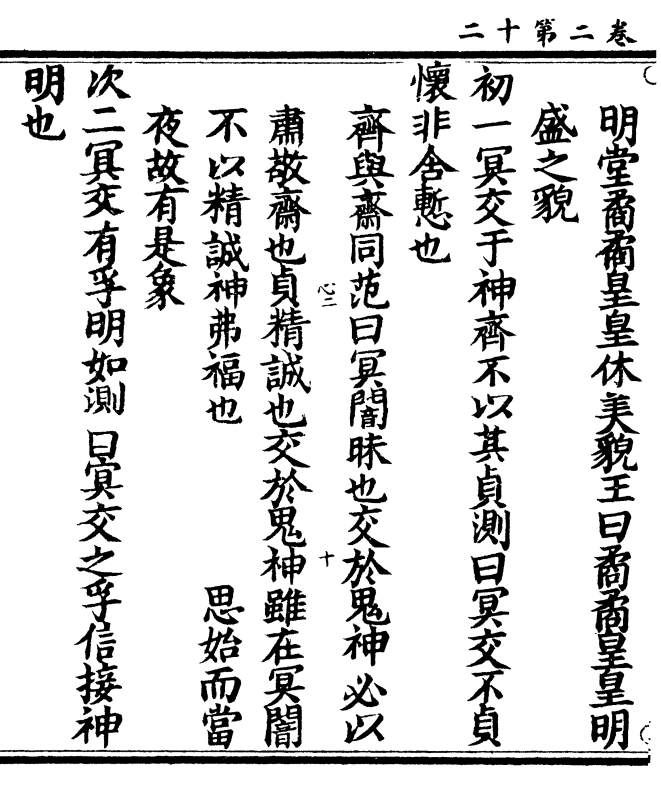 卷二第十二
明堂矞矞皇皇休美貌王曰矞矞皇皇明
盛之貌
初一冥交于神齊不以其貞測曰冥交不貞
懷非含慙也
齊與齋同范曰冥闇昧也交於鬼神必以
肅敬齋也貞精誠也交於鬼神雖在冥闇
不以精誠神弗福也 思始而當
夜故有是象
次二冥交有孚明如測曰冥交之孚信接神
明也
心二
十